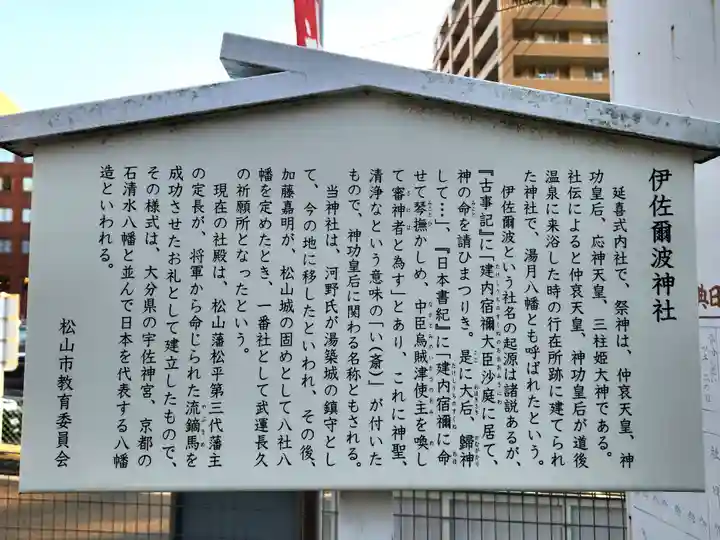 伊佐爾波神社
延喜式内社で、祭神は、仲哀天皇、神
功皇后、応神天皇、三柱姫大神である。
社伝によると仲哀天皇、神功皇后が道後
温泉に来浴した時の行在所跡に建てられ
た神社で、湯月八幡とも呼ばれたという。
伊佐爾波という社名の起源は諸説あるが、
『古事記』に「建内宿禰大臣沙庭に居て、
神の命を請ひまつりき。是に大后、歸神
して…」、『日本書紀』に「建内宿禰に命
せて琴撫かしめ、中臣烏賊津使主を喚し
て審神者と為す」とあり、これに神聖、
清浄なという意味の「いつ（斎）」が付いた
もので、神功皇后に関わる名称ともされる。
当神社は、河野氏が湯築城の鎮守とし
て、今の地に移したといわれ、その後、
加藤嘉明が、松山城の固めとして八社八
幡を定めたとき、一番社として武運長久
の祈願所となったという。
現在の社殿は、松山藩松平第三代藩主
の定長が、将軍から命じられた流鏑馬を
成功させたお礼として建立したもので、
その様式は、大分県の宇佐神宮、京都の
石清水八幡と並んで日本を代表する八幡
造といわれる。
松山市教育委員会